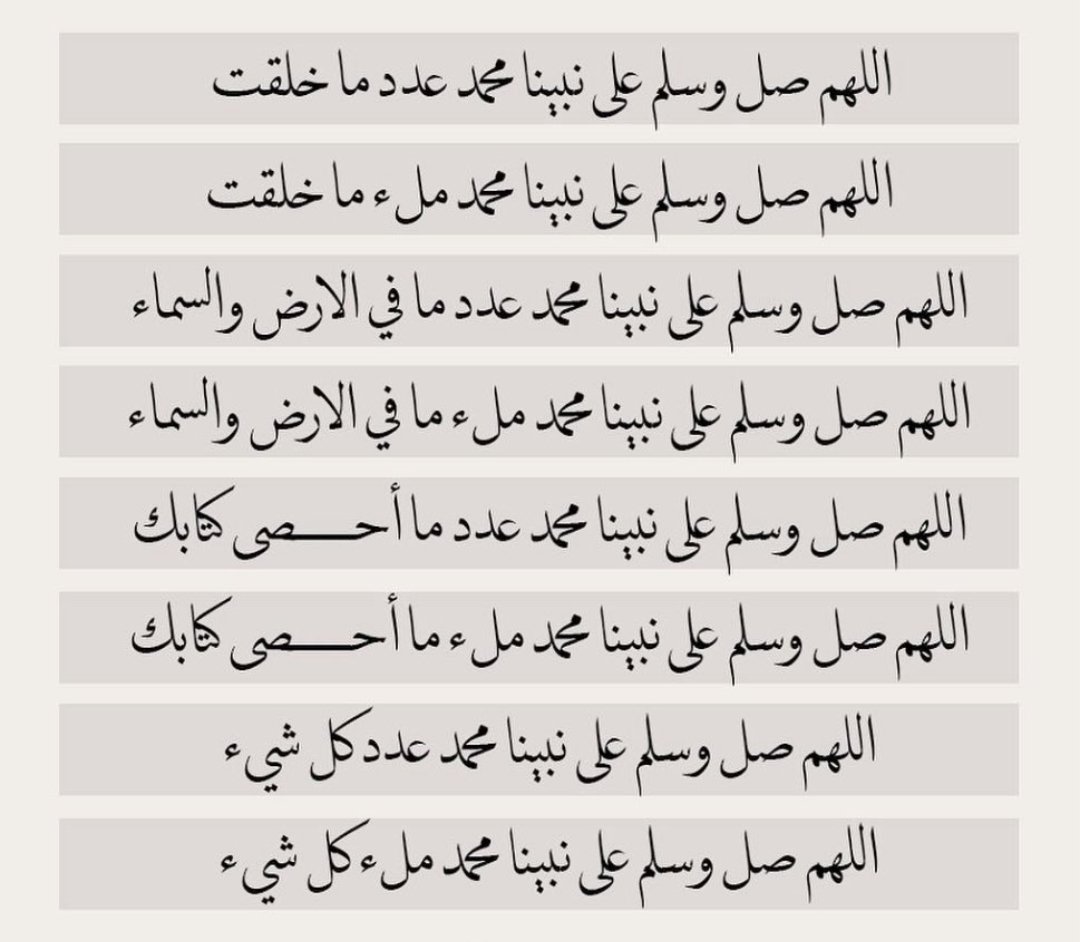 اللهم صل وسلم على نبينا محمد عدد ما خلقت
اللهم صل وسلم على نبينا محمد ملء ما خلقت
اللهم صل وسلم على نبينا محمد عدد ما في الارض والسماء
اللهم صل وسلم على نبينا محمد ملء ما في الارض والسماء
اللهم صل وسلم على نبينا محمد عدد ما أحـــصى كتابك
اللهم صل وسلم على نبينا محمد ملء ما أحـــصى كتابك
اللهم صل وسلم على نبينا محمد عدد كل شيء
اللهم صل وسلم على نبينا محمد ملء كل شيء